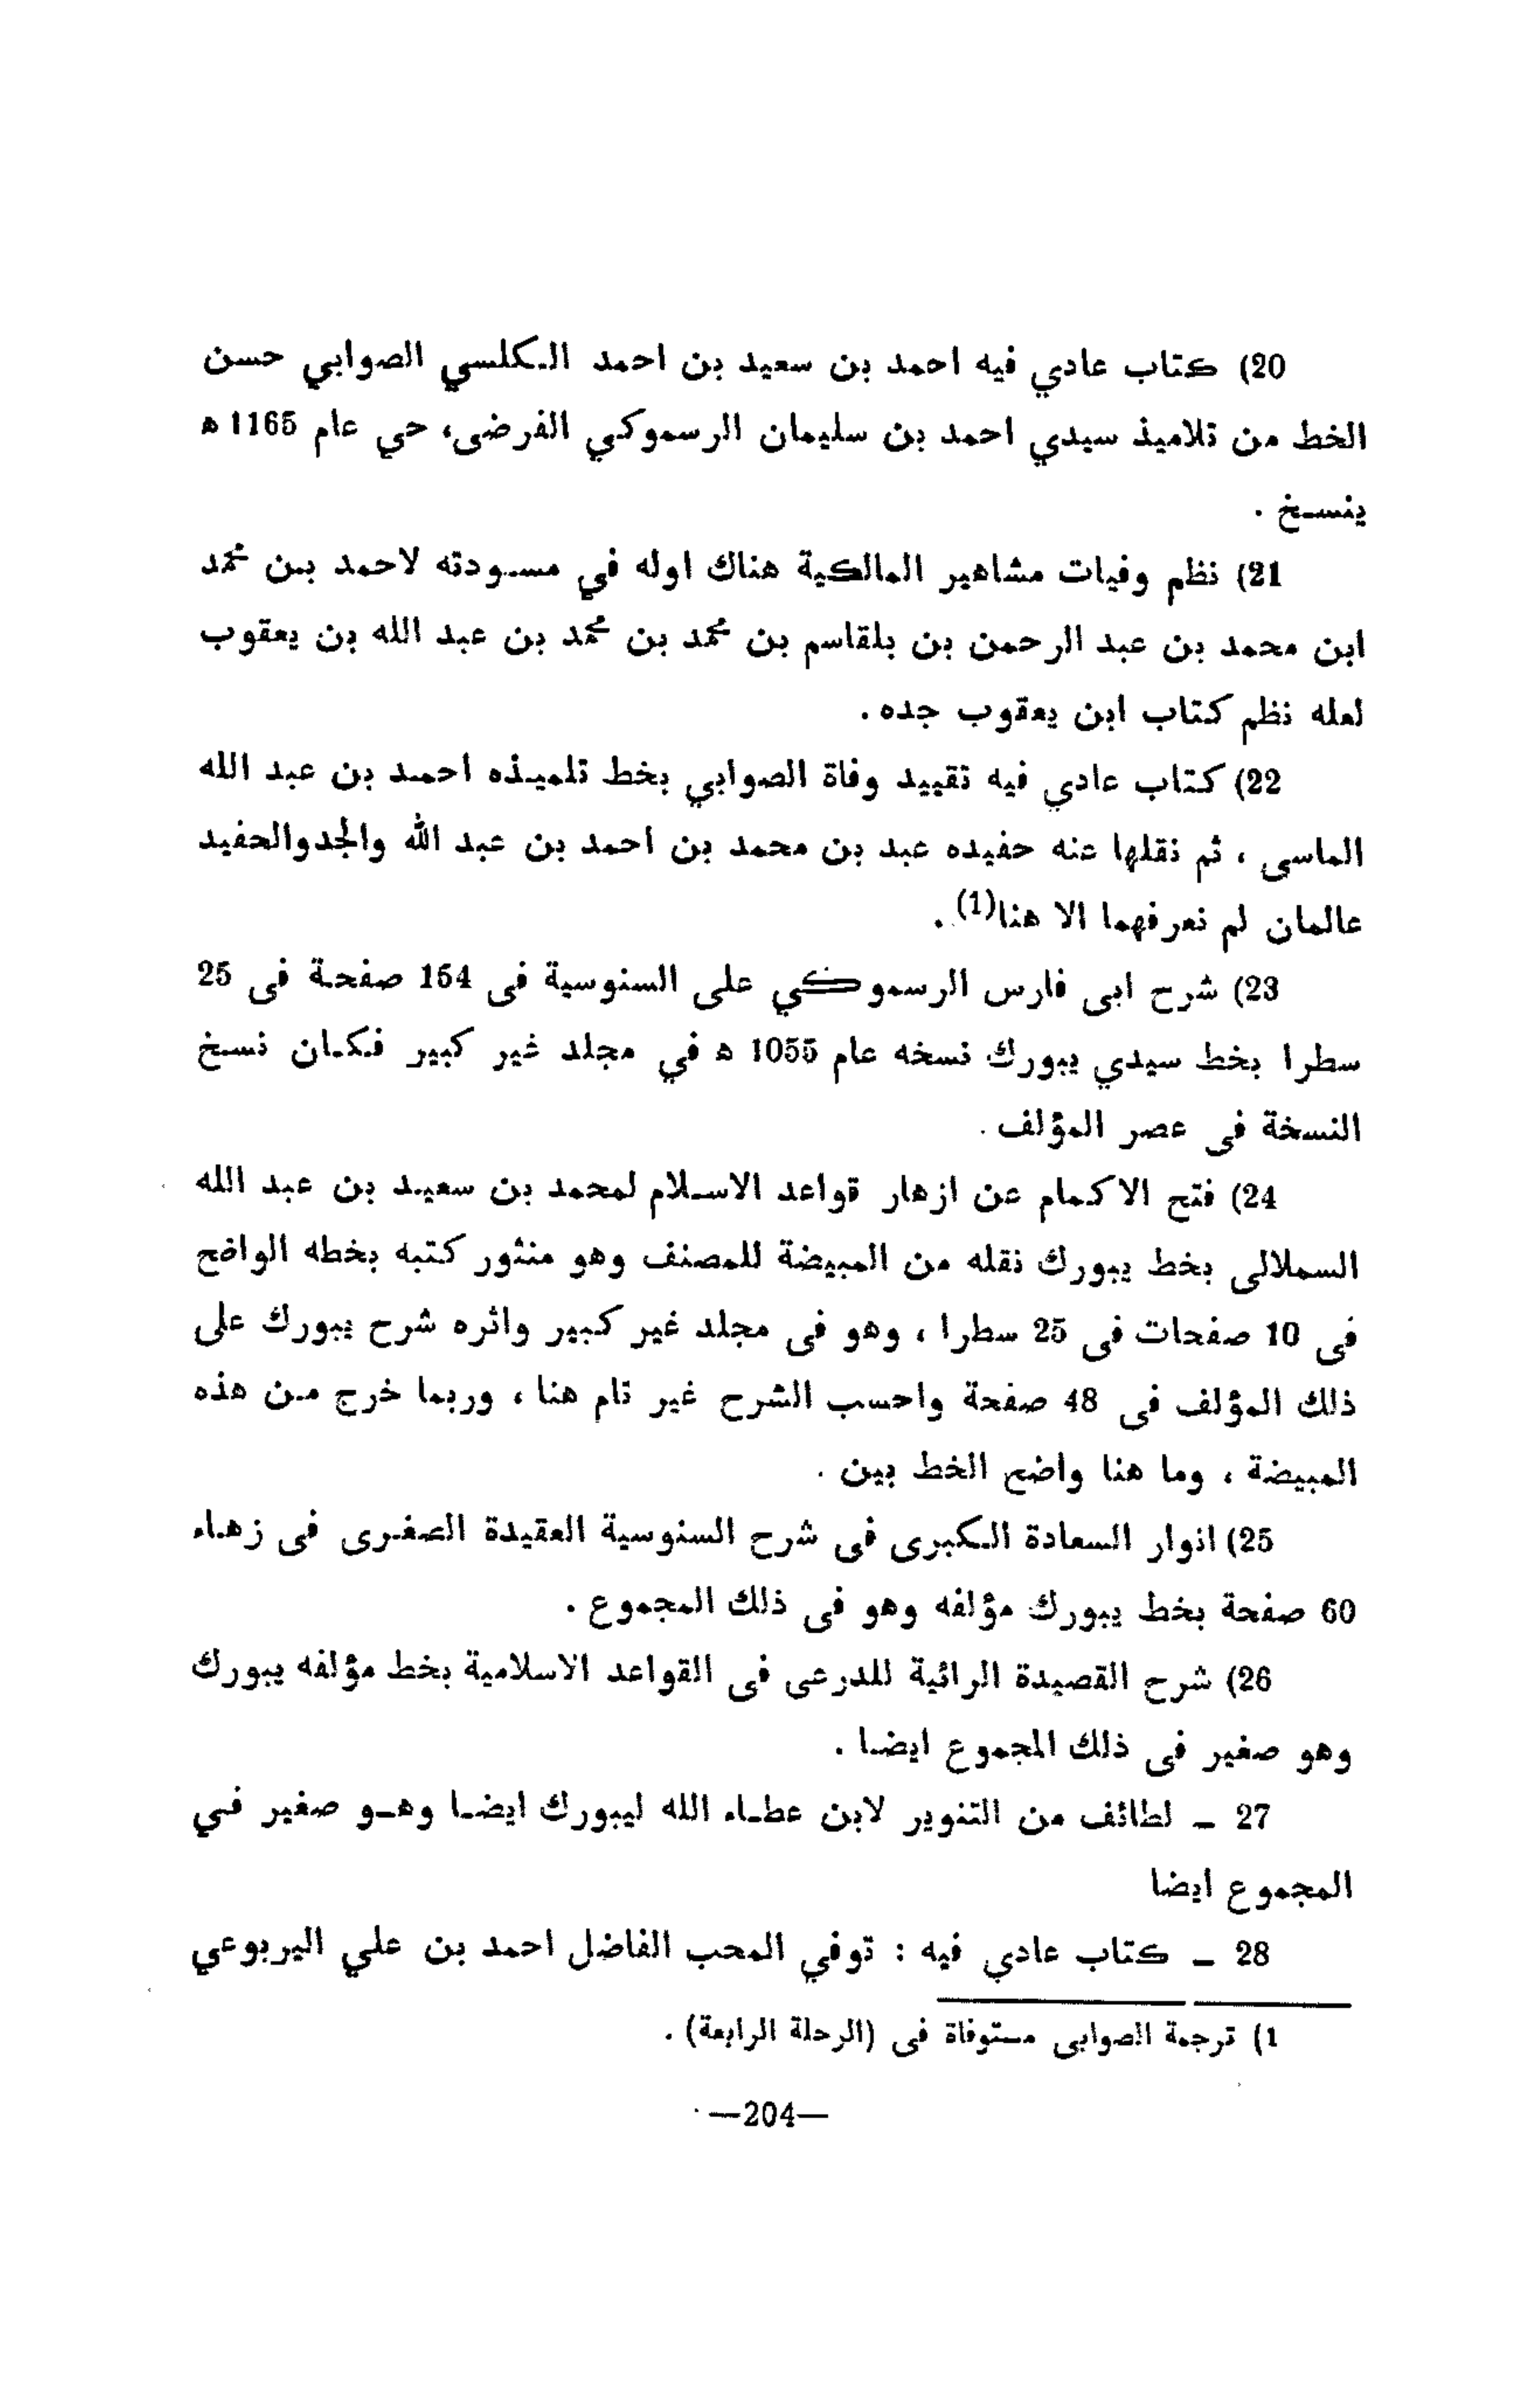 20) كتاب عادي فيه احمد بن سعيد بن احمد الـكلسي الصوابي حسن
الخط من تلاميذ سيدي احمد بن سليمان الرسموكي الفرضى، حي عام 1165 ه
ينسخ .
21) نظم وفيات مشاهير المالكية هناك اوله في مسودته لاحمد بن محمد
ابن محمد بن عبد الرحمن بن بلقاسم بن محمد بن محمد بن عبد الله بن يعقوب
لعله نظم كتاب ابن يعقوب جده .
22) كتاب عادي فيه تقييد وفاة الصوابي بخط تلميذه احمد بن عبد الله
الماسى ، ثم نقلها عنه حفيده عبد بن محمد بن احمد بن عبد الله والجدوالحفيد
عالمان لم نعرفهما الا هنا(1) .
23) شرح ابى فارس الرسموكي على السنوسية فى 154 صفحة فى 25
سطرا بخط سيدي يبورك نسخه عام 1055 ه في مجلد غير كبير فكان نسخ
النسخة فى عصر المؤلف .
24) فتح الاكمام عن ازهار قواعد الاسلام لمحمد بن سعيد بن عبد الله
السملالى بخط يبورك نقله من المبيضة للمصنف وهو منثور كتبه بخطه الواضح
فى 10 صفحات فى 25 سطرا ، وهو فى مجلد غير كبير واثره شرح يبورك على
ذلك المؤلف فى 48 صفحة واحسب الشرح غير تام هنا ، وربما خرج من هذه
المبيضة ، وما هنا واضح الخط بين .
25) انوار السعادة الـكبرى فى شرح السنوسية العقيدة الصغرى فى زهاء
60 صفحة بخط يبورك مؤلفه وهو فى ذلك المجموع .
26) شرح القصيدة الرائية للدرعى فى القواعد الاسلامية بخط مؤلفه يبورك
وهو صغير فى ذلك المجموع ايضا .
27 ـ لطائف من التنوير لابن عطاء الله ليبورك ايضا وهو صغير في
المجموع ايضا
28 ـ كتاب عادي فيه : توفي المحب الفاضل احمد بن علي اليربوعي
1) ترجمة الصوابى مستوفاة فى (الرحلة الرابعة) .
—204—